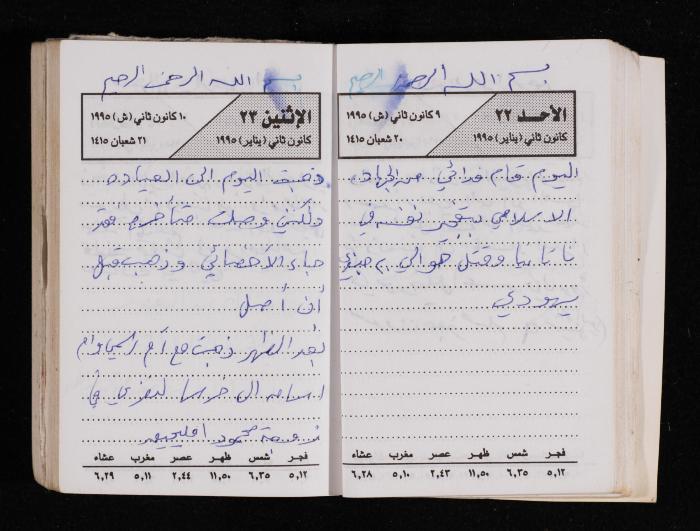 بسم الله الرحمن الرحيم
الأحد ٢٢
٩ كانون ثاني (ش) ١٩٩٥
كانون ثاني (يناير) ١٩٩٥
٢٠ شعبان ١٤١٥
اليوم قام فدائي من الجهاد
الاسلامي بتفجير نفسه في
ناتانيا وقتل حوالي ٢٠ جندي
يهودي
فجر شمس ظهر عصر مغرب عشاء
٥,١٢ ٦,٣٥ ١١,٥٠ ٢,٤٣ ٥,١٠ ٦,٢٨
بسم الله الرحمن الرحيم
الإثنين ٢٣
١٠ كانون ثاني (ش) ١٩٩٥
كانون ثاني (يناير) ١٩٩٥
٢١ شعبان ١٤١٥
ذهبت اليوم الى العيادة
ولكنني وصلت متأخرة فقد
جاء الأخصائي وذهب قبل
أن أصل
بعد الظهر ذهبت مع أم وأم
اسامه الى لنعزي في
محمود
فجر شمس ظهر عصر مغرب عشاء
٥,١٢ ٦,٣٥ ١١,٥٠ ٢,٤٤ ٥,١١ ٦,٢٩